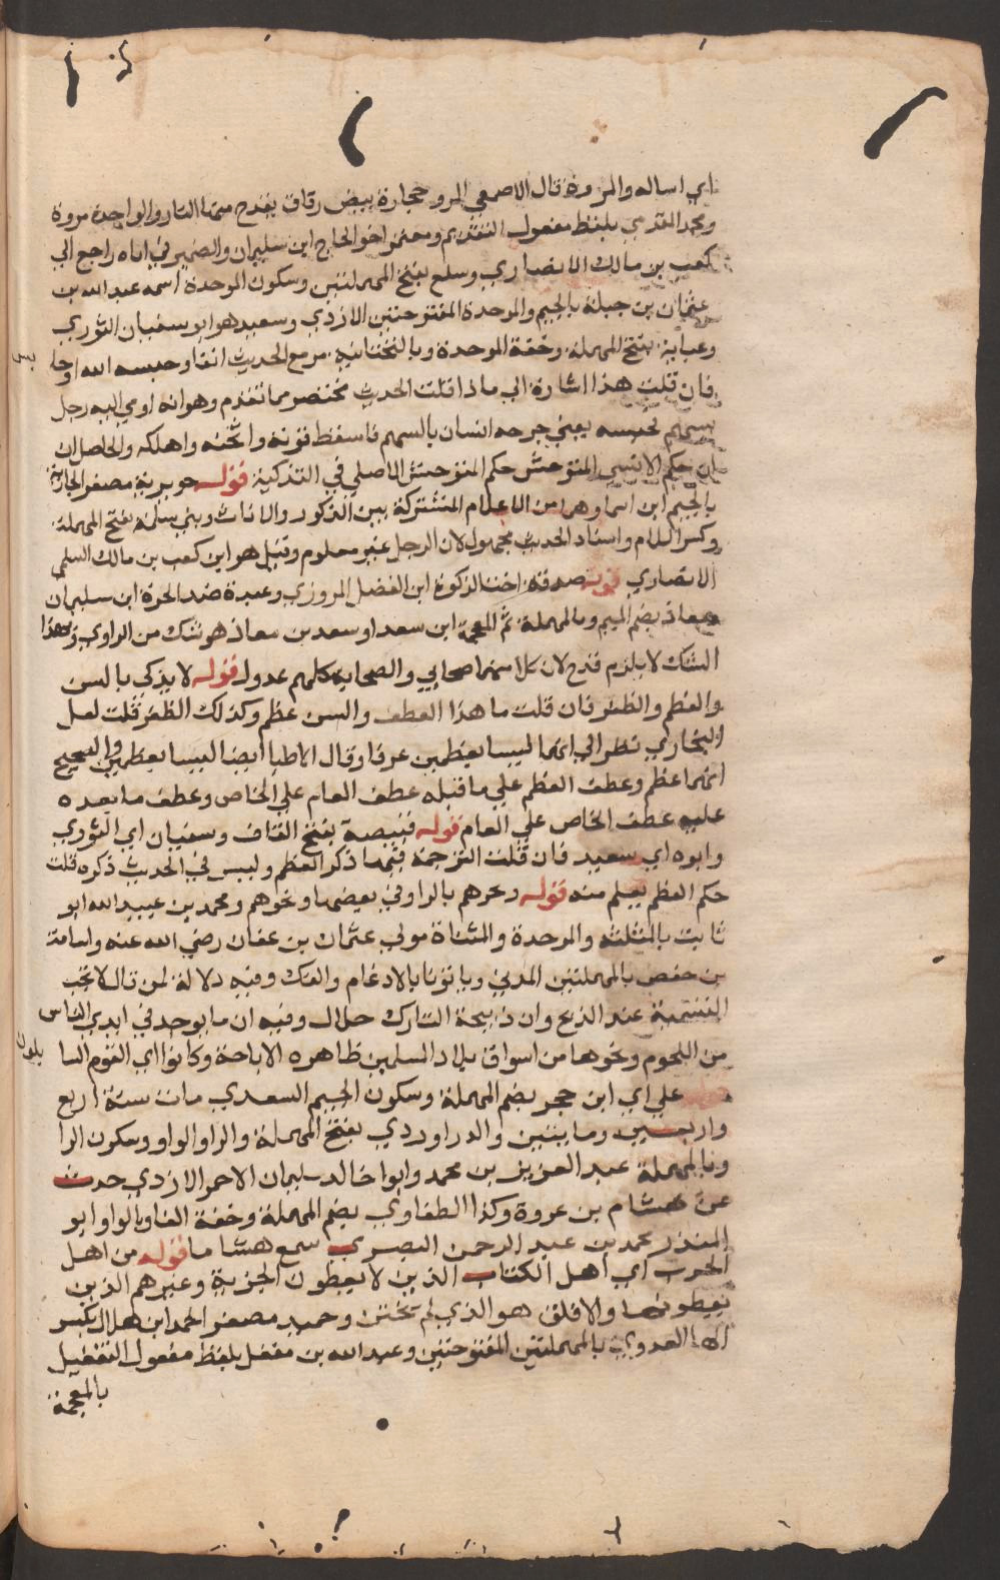 اي اساله والمروة قال الاصمعي المرو حجارة بيض رقاق يقدح منها النار والواحدة مروة
ومحمد المقدمي بلفظ مفعول التقديم ومعتمر اخو الحاج ابن سليمان والضمير في اباه راجع الي
كعب بن مالك الانصاري وسلع بفتح المهملتين وسكون الموحدة اسمه عبد الله بن
عثمان بن جبلة بالجيم والموحدة المفتوحتين الازدي وسعيد هو ابو سفيان الثوري
وعباية بفتح المهملة وخفة الموحدة وبالتحتانية مر مع الحديث انفا وحبسه الله او حا
فان قلت هذا اشارة الي ماذا قلت الحديث مختصر مما تقدم وهو انه اومي اليه رجل
بسهم فحبسه يعني جرحه انسان بالسهم فاسقط قوته واثخنه واهلكه والحاصل ان
ان حكم الانسي المتوحش حكم المتوحش الاصلي في التذكية قوله جويرية مصغر الجارية
بالجيم ابن اسما وهي من الاعلام المشتركة بين الذكور والاناث وبني سلمة بفتح المهملة
وكسر اللام واسناد الحديث مجهول لان الرجل غير معلوم وقيل هو ابن كعب بن مالك السلمي
الانصاري قوله صدقة اخت الزكوة ابن الفضل المروزي وعبدة ضد الحرة ابن سليمان
معاذ بضم الميم وبالمهملة ثم المعجمة ابن سعد او سعد بن معاذ هو شك من الراوي وهذا
الشك لا يلزم قدح لان كلا منهما صحابي والصحابة كلهم عدول قوله لا يذكي بالسن
والعظم والظفر فان قلت ما هذا العطف والسن عظم وكذلك الظفر قلت لعل
البخاري نظر الي انهما ليسا بعظمين عرفا وقال الاطبا ايضا ليسا بعظمين والصحيح
انهما عظم وعطف العظم علي ما قبله عطف العام علي الخاص وعطف ما بعده
عليه عطف الخاص علي العام قوله قبيصة بفتح القاف وسفيان اي الثوري
وابوه اي سعيد فان قلت الترجمة فيها ذكر العظم وليس في الحديث ذكره قلت
حكم العظم يعلم منه قوله وحرهم بالراوفي بعضها ونحوهم ومحمد بن عبيد الله ابو
ثابت بالمثلثة والموحدة والمثناة مولي عثمان بن عفان رضي الله عنه واسامة
بن حفص بالمهملتين المدني وياتونا بالادغام والفك وفيه دلالة لمن قال لا تجب
التسمية عند الذبح وان ذبيحة التارك حلال وفيه ان ما يوجد في ايدي الناس
من اللحوم ونحوها من اسواق بلاد المسلمين ظاهره الاباحة وكانوا اي القوم السا
علي اي ابن حجر بضم المهملة وسكون الجيم السعدي مات سنة اربع
واربعين ومايتين والدراوردي بفتح المهملة والراو الواو وسكون الرا
وبالمهملة عبد العزيز بن محمد وابوا خالد سليمان الاحمر الازدي حدث
عن هشام بن عروة وكذا الطفاوي بضم المهملة وخفة الفا وبالواو ابو
المنذر محمد بن عبد الرحمن البصري سمع هشاما قوله من اهل
الحرب اي اهل الكتاب الذين لا يعطون الجزية وغيرهم الذين
يعطونها والاقلف هو الذي لم يختن وحميد مصغر الحمد ابن هلال بكسر
الها العدوي بالمهملتين المفتوحتين وعبد الله بن مغفل بلفظ مفعول التفعيل
بالمعجمة